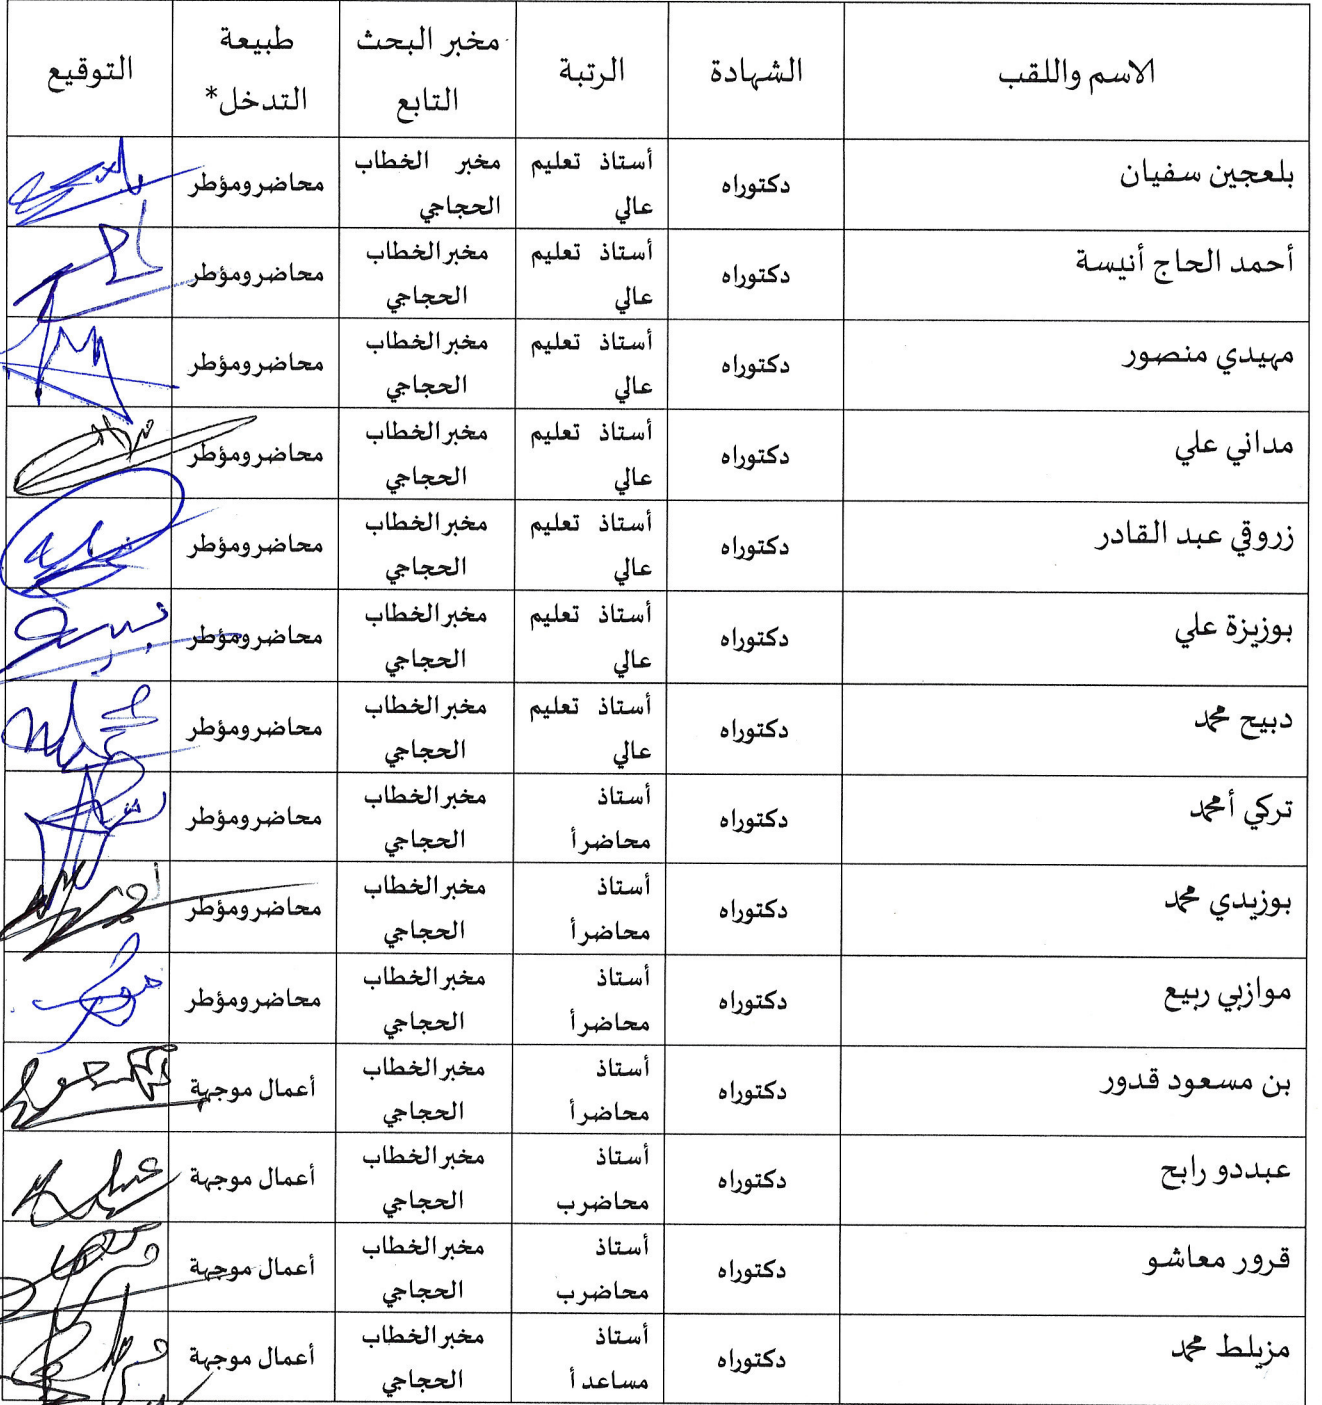 الاسم واللقب الشهادة الرتبة مخبر البحث التابع طبيعة التدخل* التوقيع
بلعجين سفيان دكتوراه أستاذ تعليم عالي مخبر الخطاب الحجاجي محاضر ومؤطر
أحمد الحاج أنيسة دكتوراه أستاذ تعليم عالي مخبر الخطاب الحجاجي محاضر ومؤطر
مهيدي منصور دكتوراه أستاذ تعليم عالي مخبر الخطاب الحجاجي محاضر ومؤطر
مداني علي دكتوراه أستاذ تعليم عالي مخبر الخطاب الحجاجي محاضر ومؤطر
زروقي عبد القادر دكتوراه أستاذ تعليم عالي مخبر الخطاب الحجاجي محاضر ومؤطر
بوزيزة علي دكتوراه أستاذ تعليم عالي مخبر الخطاب الحجاجي محاضر ومؤطر
دبيح محمد دكتوراه أستاذ تعليم عالي مخبر الخطاب الحجاجي محاضر ومؤطر
تركي أمحمد دكتوراه أستاذ محاضر أ مخبر الخطاب الحجاجي محاضر ومؤطر
بوزيدي محمد دكتوراه أستاذ محاضر أ مخبر الخطاب الحجاجي محاضر ومؤطر
موازبي ربيع دكتوراه أستاذ محاضر أ مخبر الخطاب الحجاجي محاضر ومؤطر
بن مسعود قدور دكتوراه أستاذ محاضر أ مخبر الخطاب الحجاجي أعمال موجهة
عبددو رابح دكتوراه أستاذ محاضر ب مخبر الخطاب الحجاجي أعمال موجهة
قرور معاشو دكتوراه أستاذ محاضر ب مخبر الخطاب الحجاجي أعمال موجهة
مزيلط محمد دكتوراه أستاذ مساعد أ مخبر الخطاب الحجاجي أعمال موجهة